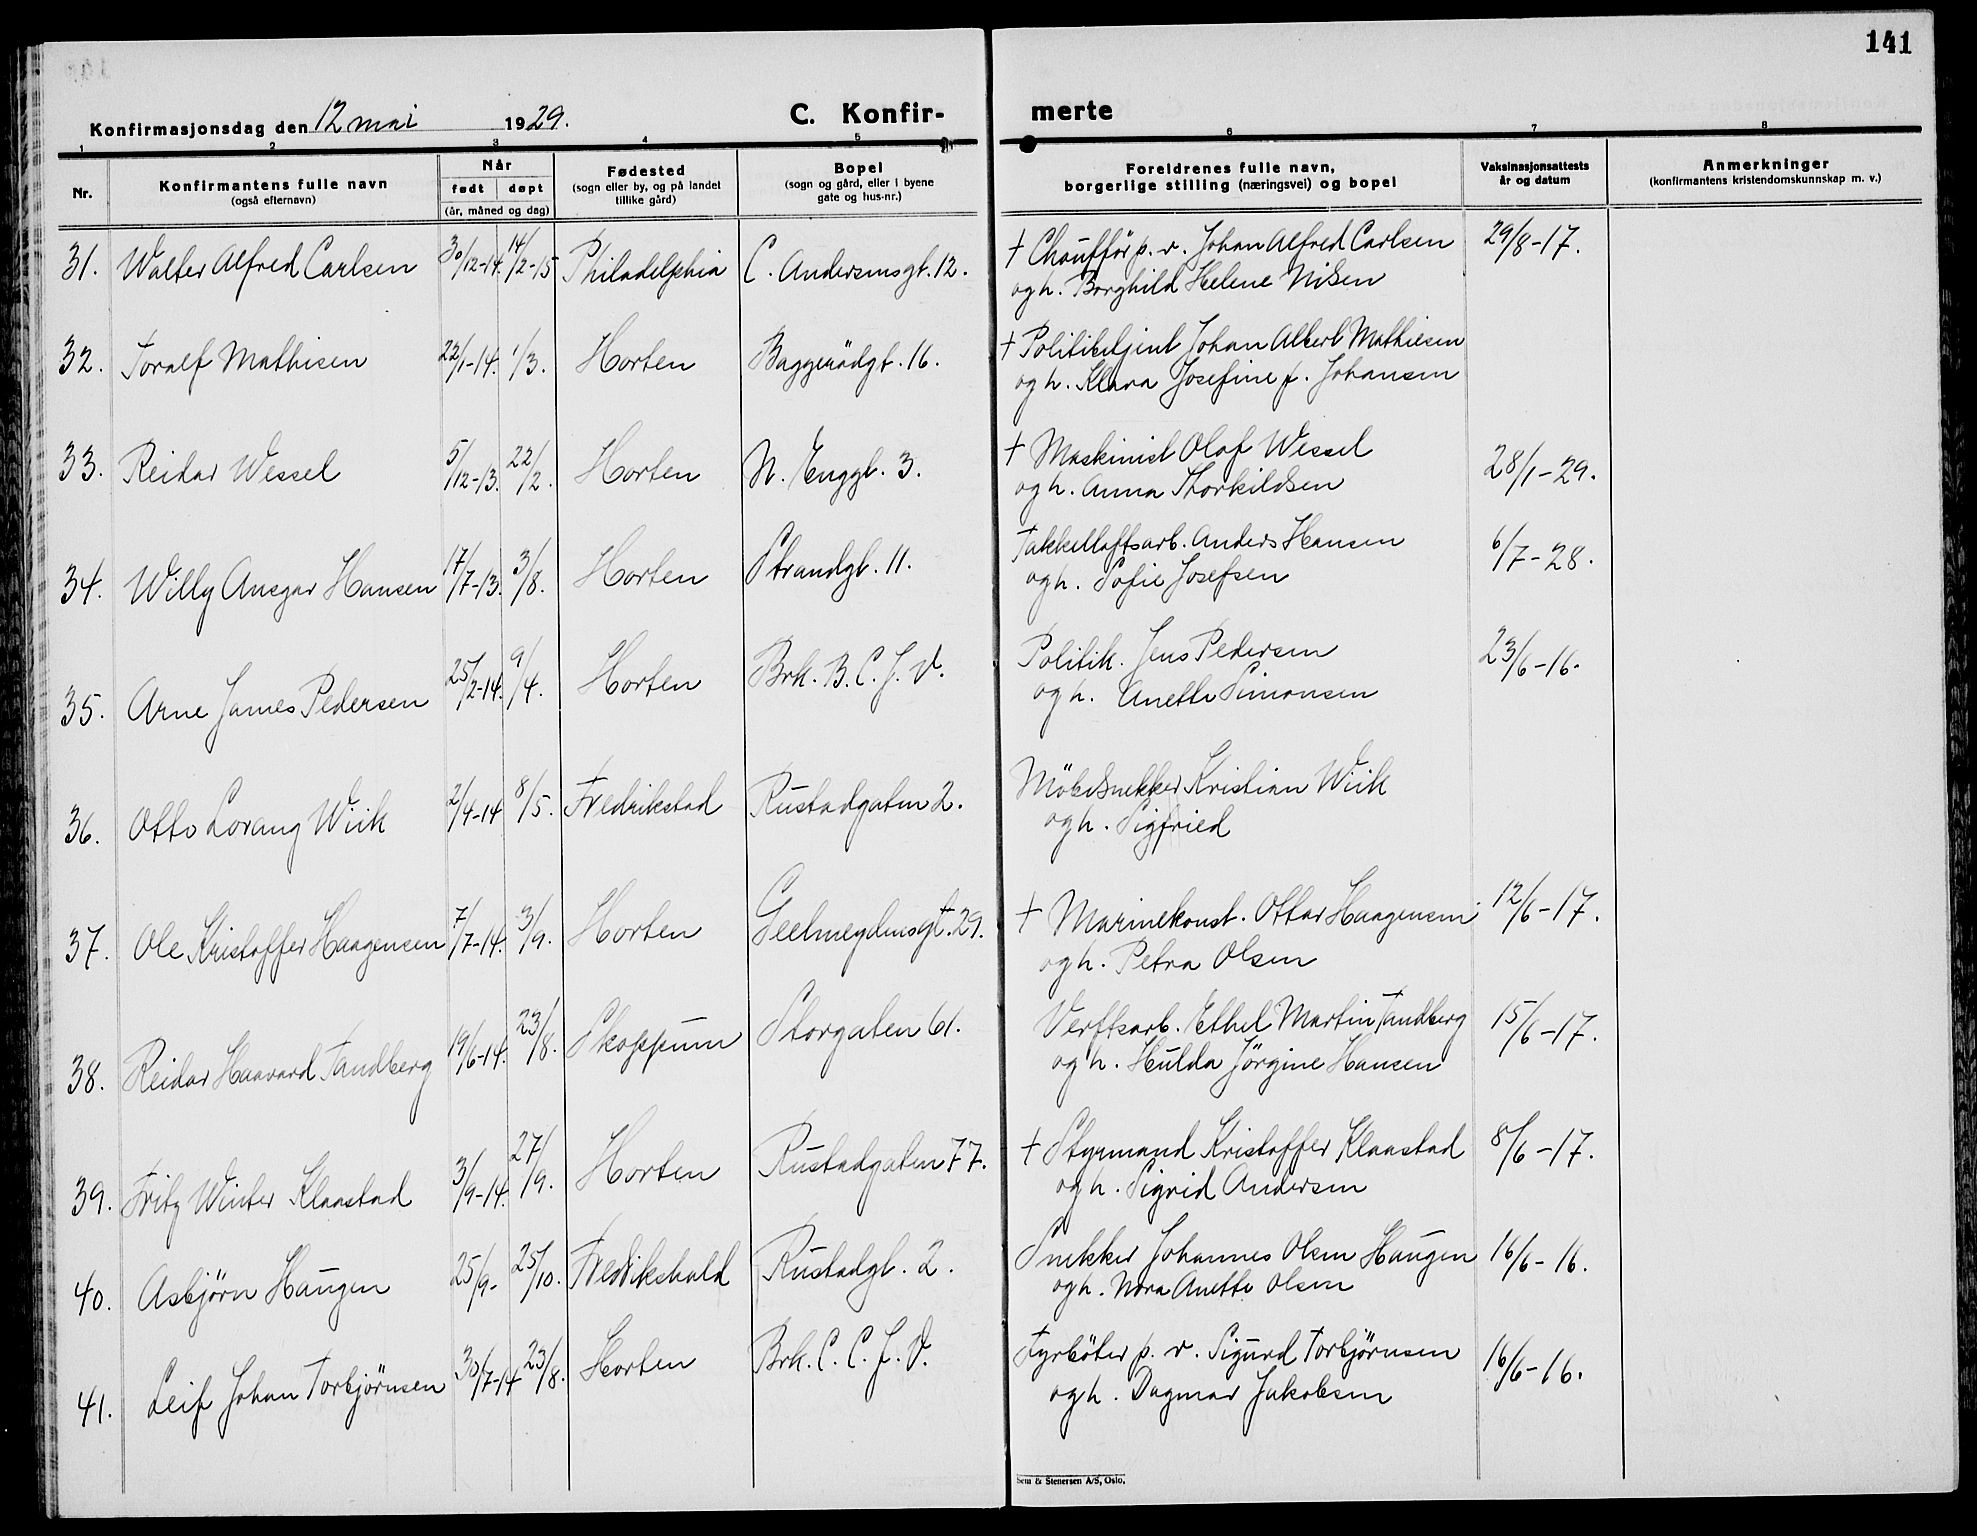 141
Konfirmasjonsdag den 12 mai 1929. C. Konfirmerte
1 2 3 4 5 6 7 8
Nr. Konfirmantens fulle navn (også efternavn) Når født døpt (år, måned og dag) Fødested (sogn eller by, og på landet tillike gård) Bopel (sogn og gård, eller i byene gate og hus-nr.) Foreldrenes fulle navn, borgerlige stilling (næringsvei) og bopel Vaksinasjonsattests år og datum Anmerkninger (konfirmantens kristendomskunnskap m. v.)
31. Walter Alfred Carlsen 30/12-14. 14/2-15 Philadelphia C. Andersensgt. 12. † Chaufför p. v. Johan Alfred Carlsen 29/8-17.
og h. Borghild Helene Nilsen
32. Toralf Mathisen 22/1-14. 1/3. Horten Baggerödgt. 16. † Politibetjent Johan Albert Mathiesen
og h. Klara Josefine f. Johansen
33. Reidar Wessel 5/12-13. 22/2. Horten N. Enggt. 3. † Maskinist Olaf Wessel 28/1-29.
og h. Anna Thorkildsen
34. Willy Ansgar Hansen 17/7-13. 3/8. Horten Strandgt. 11. Takkelloftsarb. Anders Hansen 6/7-28.
og h. Sofie Josefsen
35. Arne James Pedersen 25/2-14. 9/4. Horten Brk. B. C. J. V. Politik. Jens Pedersen 23/6-16.
og h. Anette Simonsen
36. Otto Lorang Wiik 2/4-14 8/5. Fredrikstad Rustadgaten 2. Möbelsnekker Kristian Wiik
og h. Sigfried
37. Ole Kristoffer Haagensen 7/7-14. 3/9. Horten Geelmeydensgt. 29. † Marinekonst. Ottar Haagensen 12/6-17.
og h. Petra Olsen
38. Reidar Haavard Tandberg 19/6-14. 23/8. Skoppum Storgaten 61. Verftsarb. Ethel Martin Tandberg 15/6-17.
og h. Hulda Jörgine Hansen
39. Fritz Winter Klaastad 3/9-14. 27/9. Horten Rustadgaten 77. † Styrmand Kristoffer Klaastad 8/6-17.
og h. Sigrid Andersen
40. Asbjörn Haugen 25/9- 25/10. Fredrikshald Rustadgt. 2. Snekker Johannes Olsen Haugen 16/6-16.
og h. Nora Anette Olsen
41. Leif Johan Torbjörnsen 30/7-14 23/8. Horten Brk. C. C. J. V. Fyrböter p. v. Sigurd Torbjörnsen 16/6-16.
og h. Dagmar Jakobsen
Sem & Stenersen A/S, Oslo.